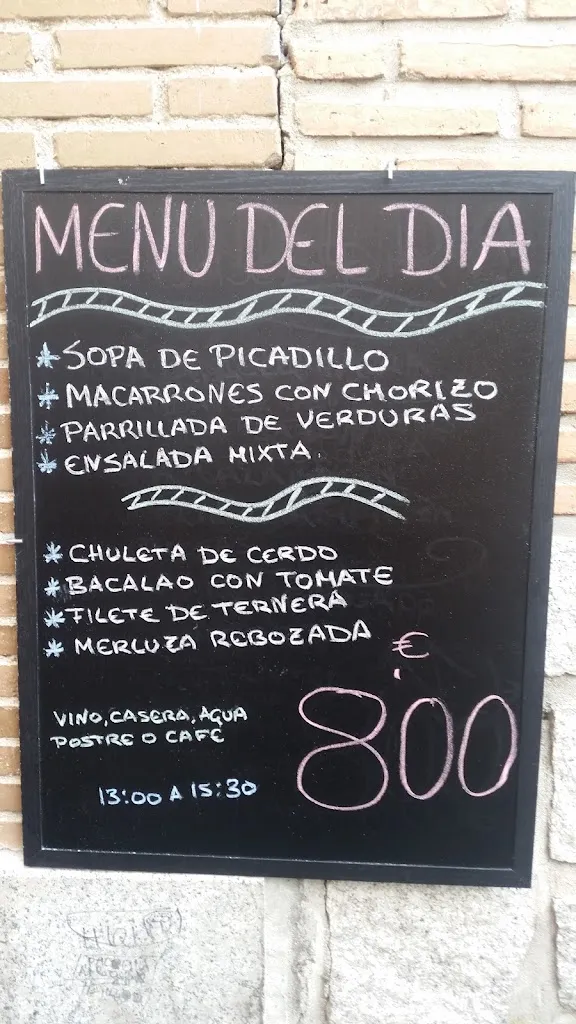 MENU DEL DIA
* SOPA DE PICADILLO
* MACARRONES CON CHORIZO
* PARRILLADA DE VERDURAS
* ENSALADA MIXTA.
* CHULETA DE CERDO
* BACALAO CON TOMATE
* FILETE DE TERNERA
* MERLUZA REBOZADA
€
8'00
VINO, CASERA, AGUA
POSTRE O CAFÉ
13:00 A 15:30